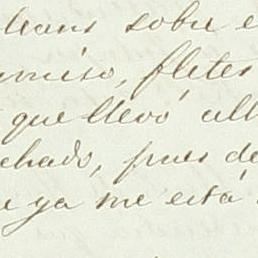 leans sobre e
miso, fletes
que llevó all
chado, pues de
e ya me está